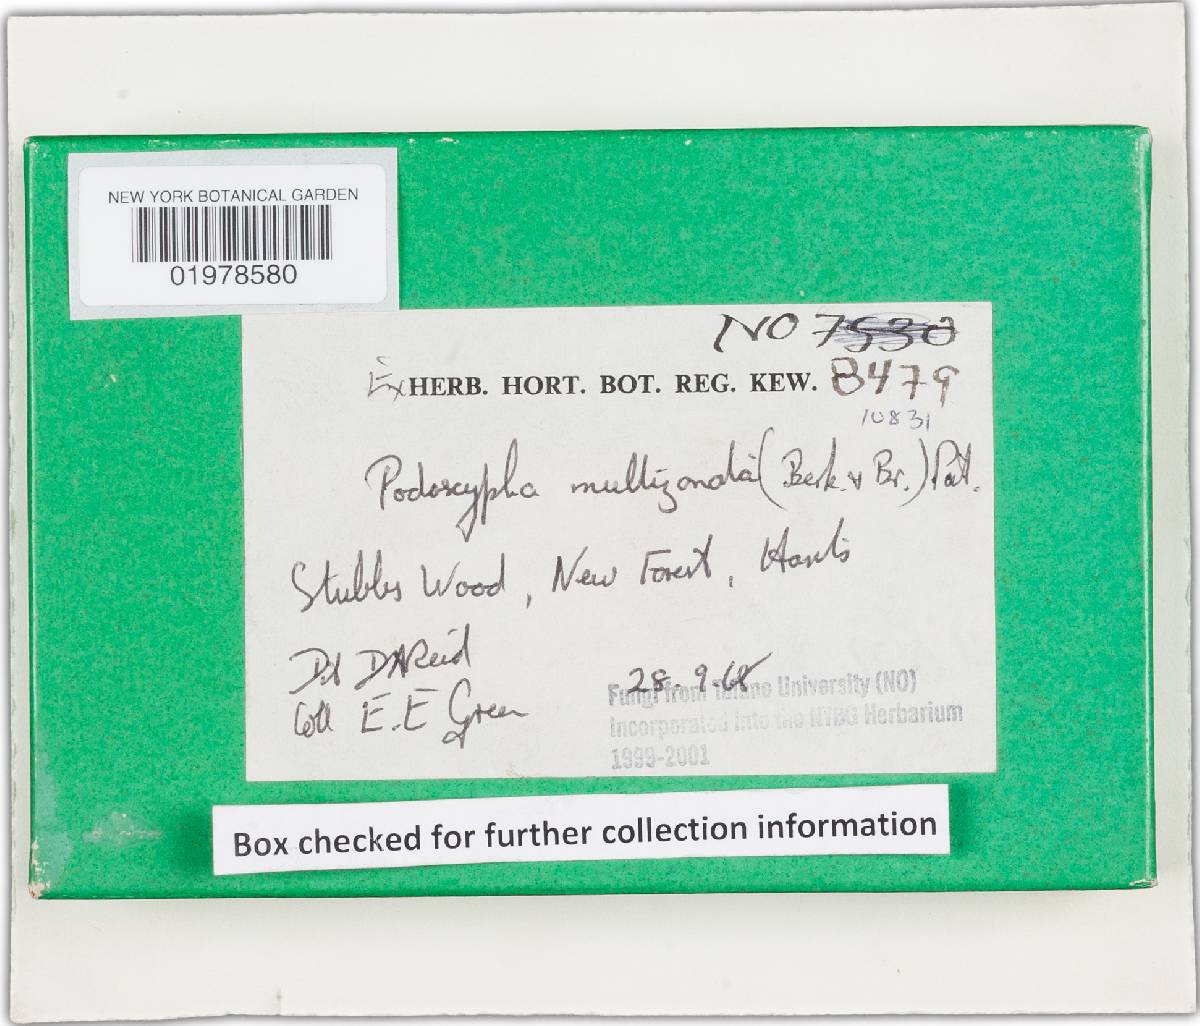 NEW YORK BOTANICAL GARDEN
01978580
NO 7530
Ex HERB. HORT. BOT. REG. KEW. 8479
10831
Podoscypha multizonata (Berk. & Br.) Pat.
Stubbs Wood, New Forest, Hants
Det D A Reid
28-9-68
Coll E. E Green
Fungi from Tulane University (NO)
Incorporated into the NYBG Herbarium
1999-2001
Box checked for further collection information